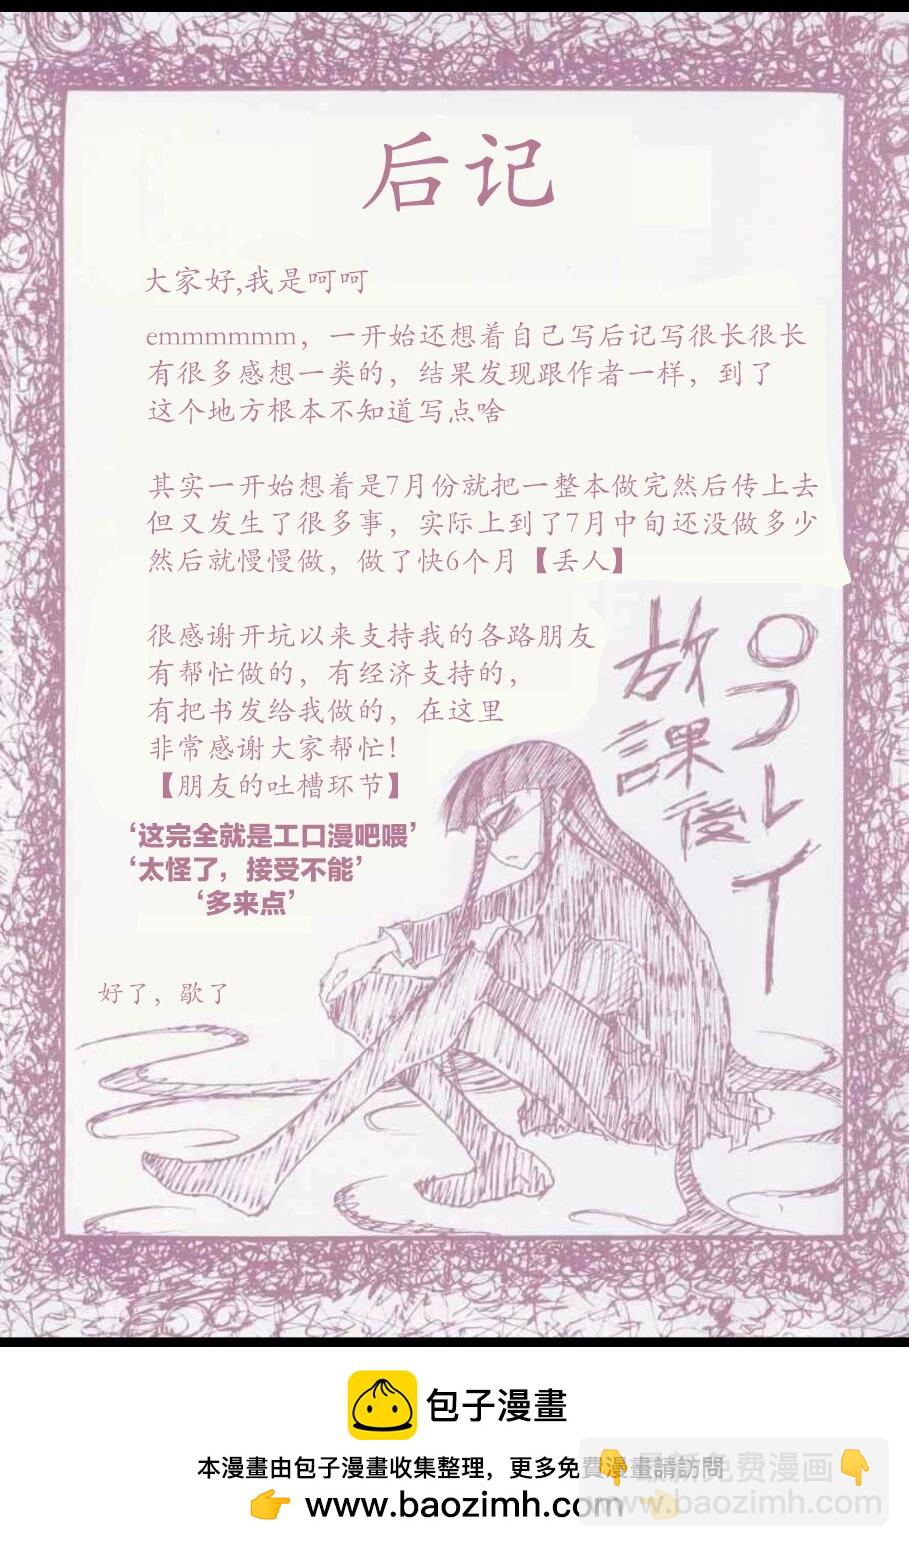 后记
大家好,我是呵呵
emmmmmm，一开始还想着自己写后记写很长很长
有很多感想一类的，结果发现跟作者一样，到了
这个地方根本不知道写点啥
其实一开始想着是7月份就把一整本做完然后传上去
但又发生了很多事，实际上到了7月中旬还没做多少
然后就慢慢做，做了快6个月【丢人】
很感谢开坑以来支持我的各路朋友
有帮忙做的，有经济支持的，
有把书发给我做的，在这里
非常感谢大家帮忙！
【朋友的吐槽环节】
‘这完全就是工口漫吧喂’
‘太怪了，接受不能’
‘多来点’
好了，歇了
放課後
プレイ
包子漫畫
本漫畫由包子漫畫收集整理，更多免費漫畫請訪問
👉 www.baozimh.com 👈
👇最新免费漫画👇
www.baozimh.com